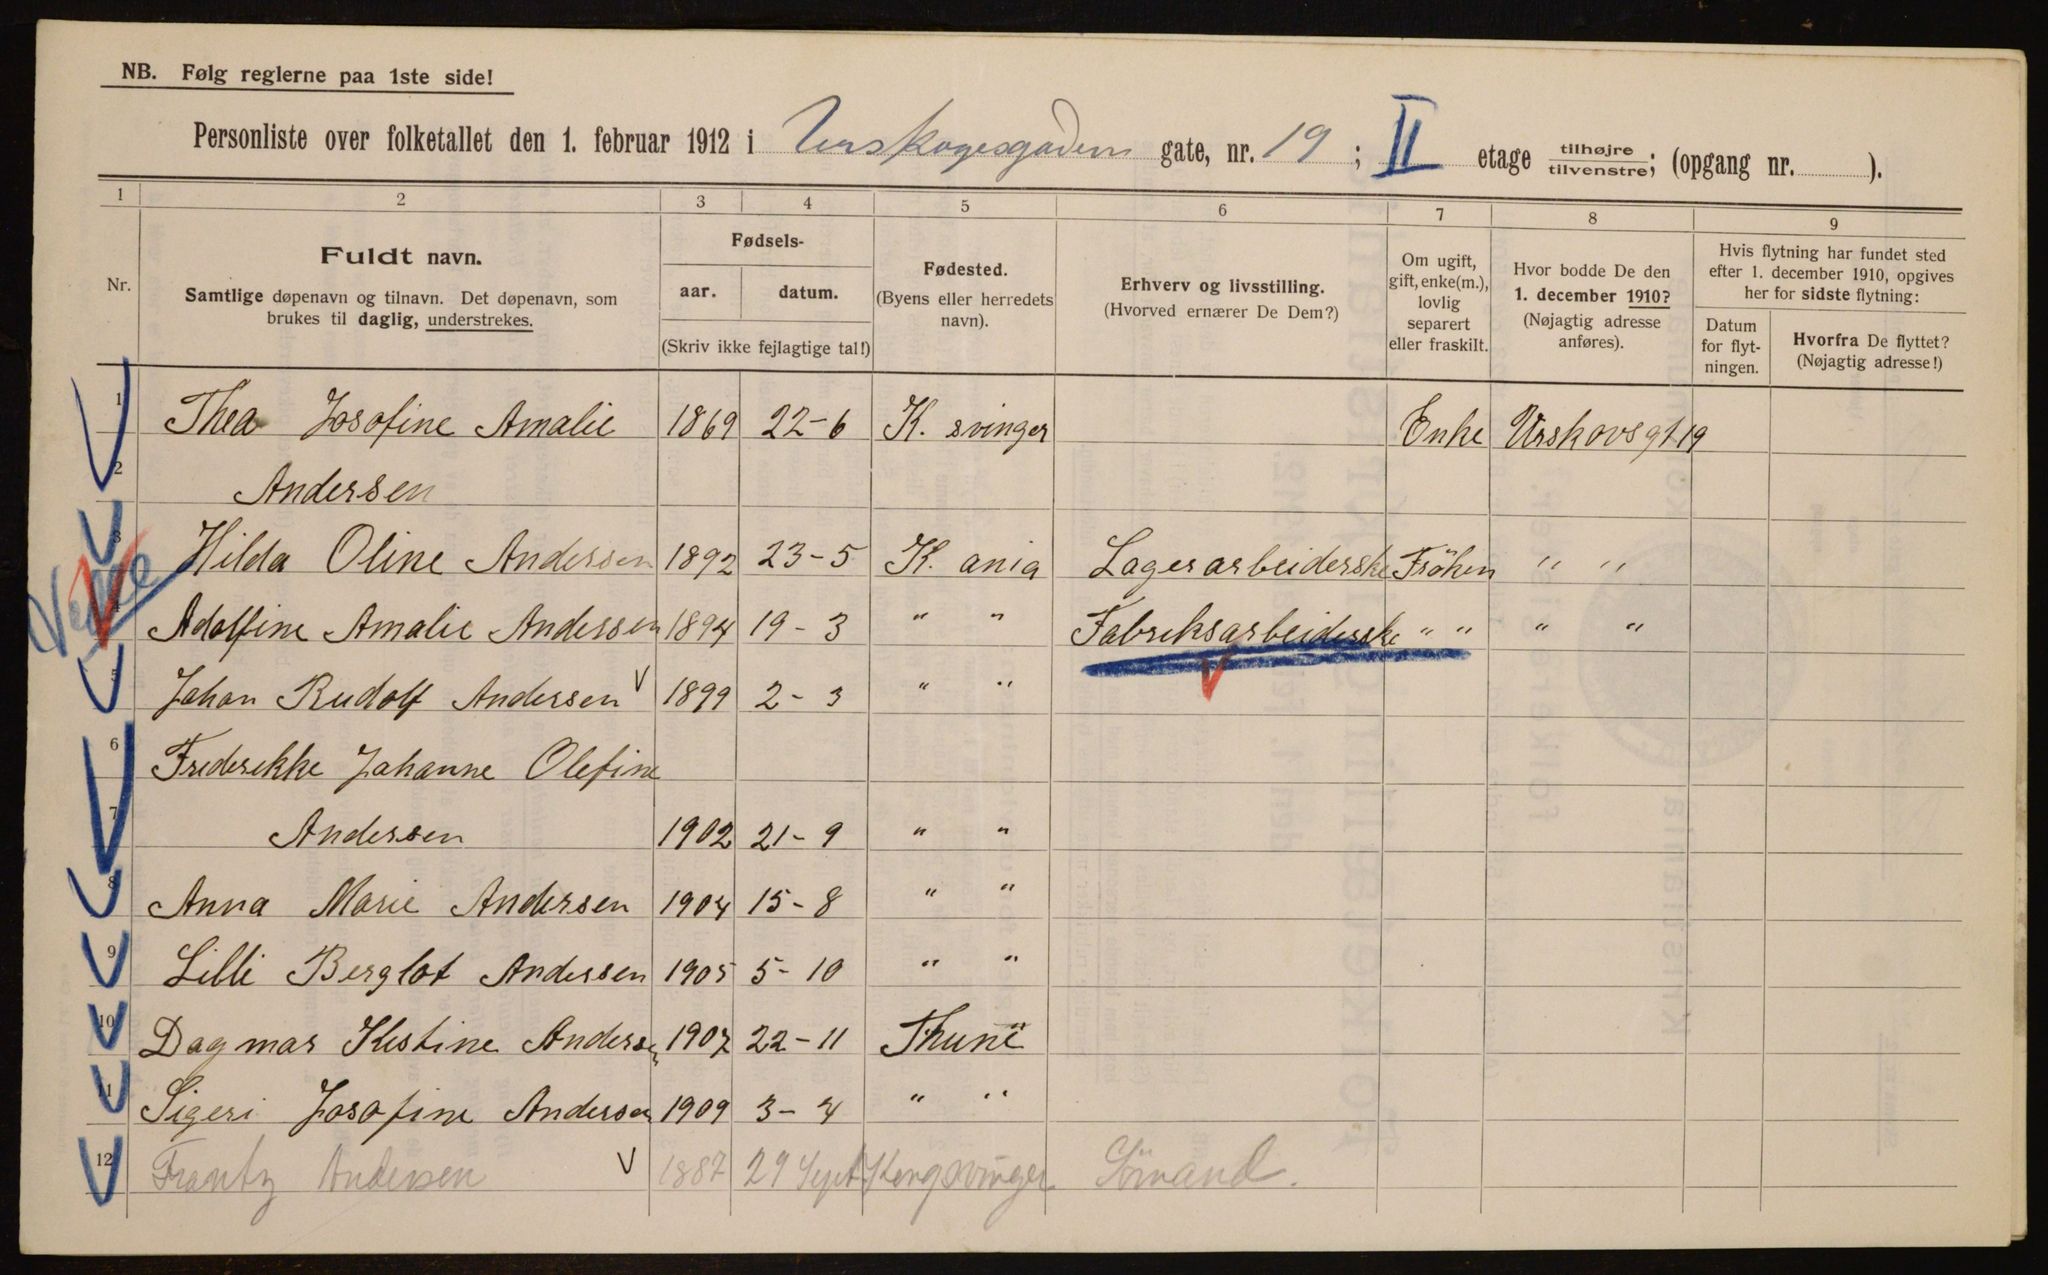 NB. Følg reglerne paa 1ste side!
Personliste over folketallet den 1. februar 1912 i Urskogsgaden gate, nr. 19 ; II etage tilhøjre/tilvenstre; (opgang nr. ).
1 2 3 4 5 6 7 8 9
Nr.
Fuldt navn.
Samtlige døpenavn og tilnavn. Det døpenavn, som
brukes til daglig, understrekes.
Fødsels-
aar. datum.
(Skriv ikke fejlagtige tal!)
Fødested.
(Byens eller herredets
navn).
Erhverv og livsstilling.
(Hvorved ernærer De Dem?)
Om ugift,
gift, enke(m.),
lovlig
separert
eller fraskilt.
Hvor bodde De den
1. december 1910?
(Nøjagtig adresse
anføres).
Hvis flytning har fundet sted
efter 1. december 1910, opgives
her for sidste flytning:
Datum
for flyt-
ningen.
Hvorfra De flyttet?
(Nøjagtig adresse!)
1 Thea Josofine Amalie 1869 22-6 K. svinger Enke Urskovsgt 19
2 Andersen
3 Hilda Oline Andersen 1892 23-5 K. ania Lagerarbeiderske Fröken " "
4 Adolfine Amalie Andersen 1894 19-3 " " Fabriksarbeiderske " " " "
5 Johan Rudolf Andersen V 1899 2-3 " "
6 Frederekke Johanne Olefine
7 Andersen 1902 21-9 " "
8 Anna Marie Andersen 1904 15-8 " "
9 Lilli Berglot Andersen 1905 5-10 " "
10 Dagmar Kestine Andersen 1907 22-11 Thune
11 Sigeri Josofine Andersen 1909 3-4 " "
12 Frantz Andersen V 1887 29 Sept. Kongsvinger Sömand.